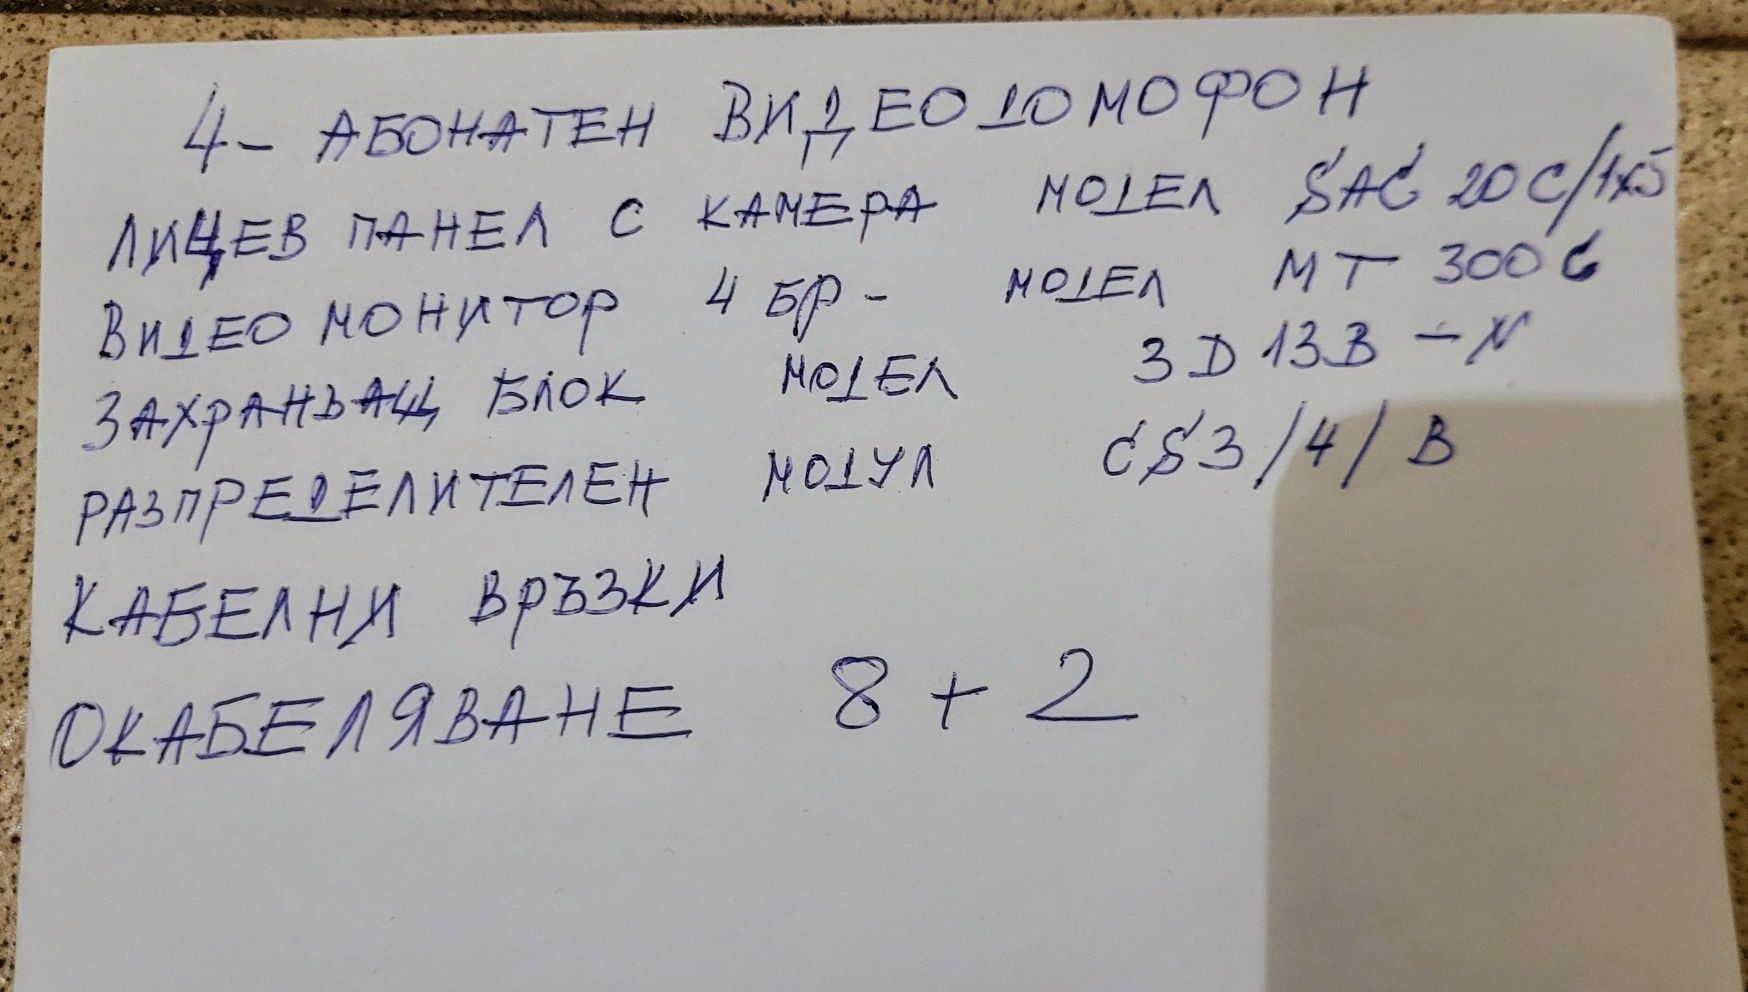 4- АБОНАТЕН ВИДЕОДОМОФОН
ЛИЦЕВ ПАНЕЛ С КАМЕРА МОДЕЛ SAC 20C/1x5
ВИДЕО МОНИТОР 4 БР - МОДЕЛ MT 300C
ЗАХРАНВАЩ БЛОК МОДЕЛ 3D 13B - N
РАЗПРЕДЕЛИТЕЛЕН МОДУЛ CS3/4/B
КАБЕЛНИ ВРЪЗКИ
ОКАБЕЛЯВАНЕ 8 + 2